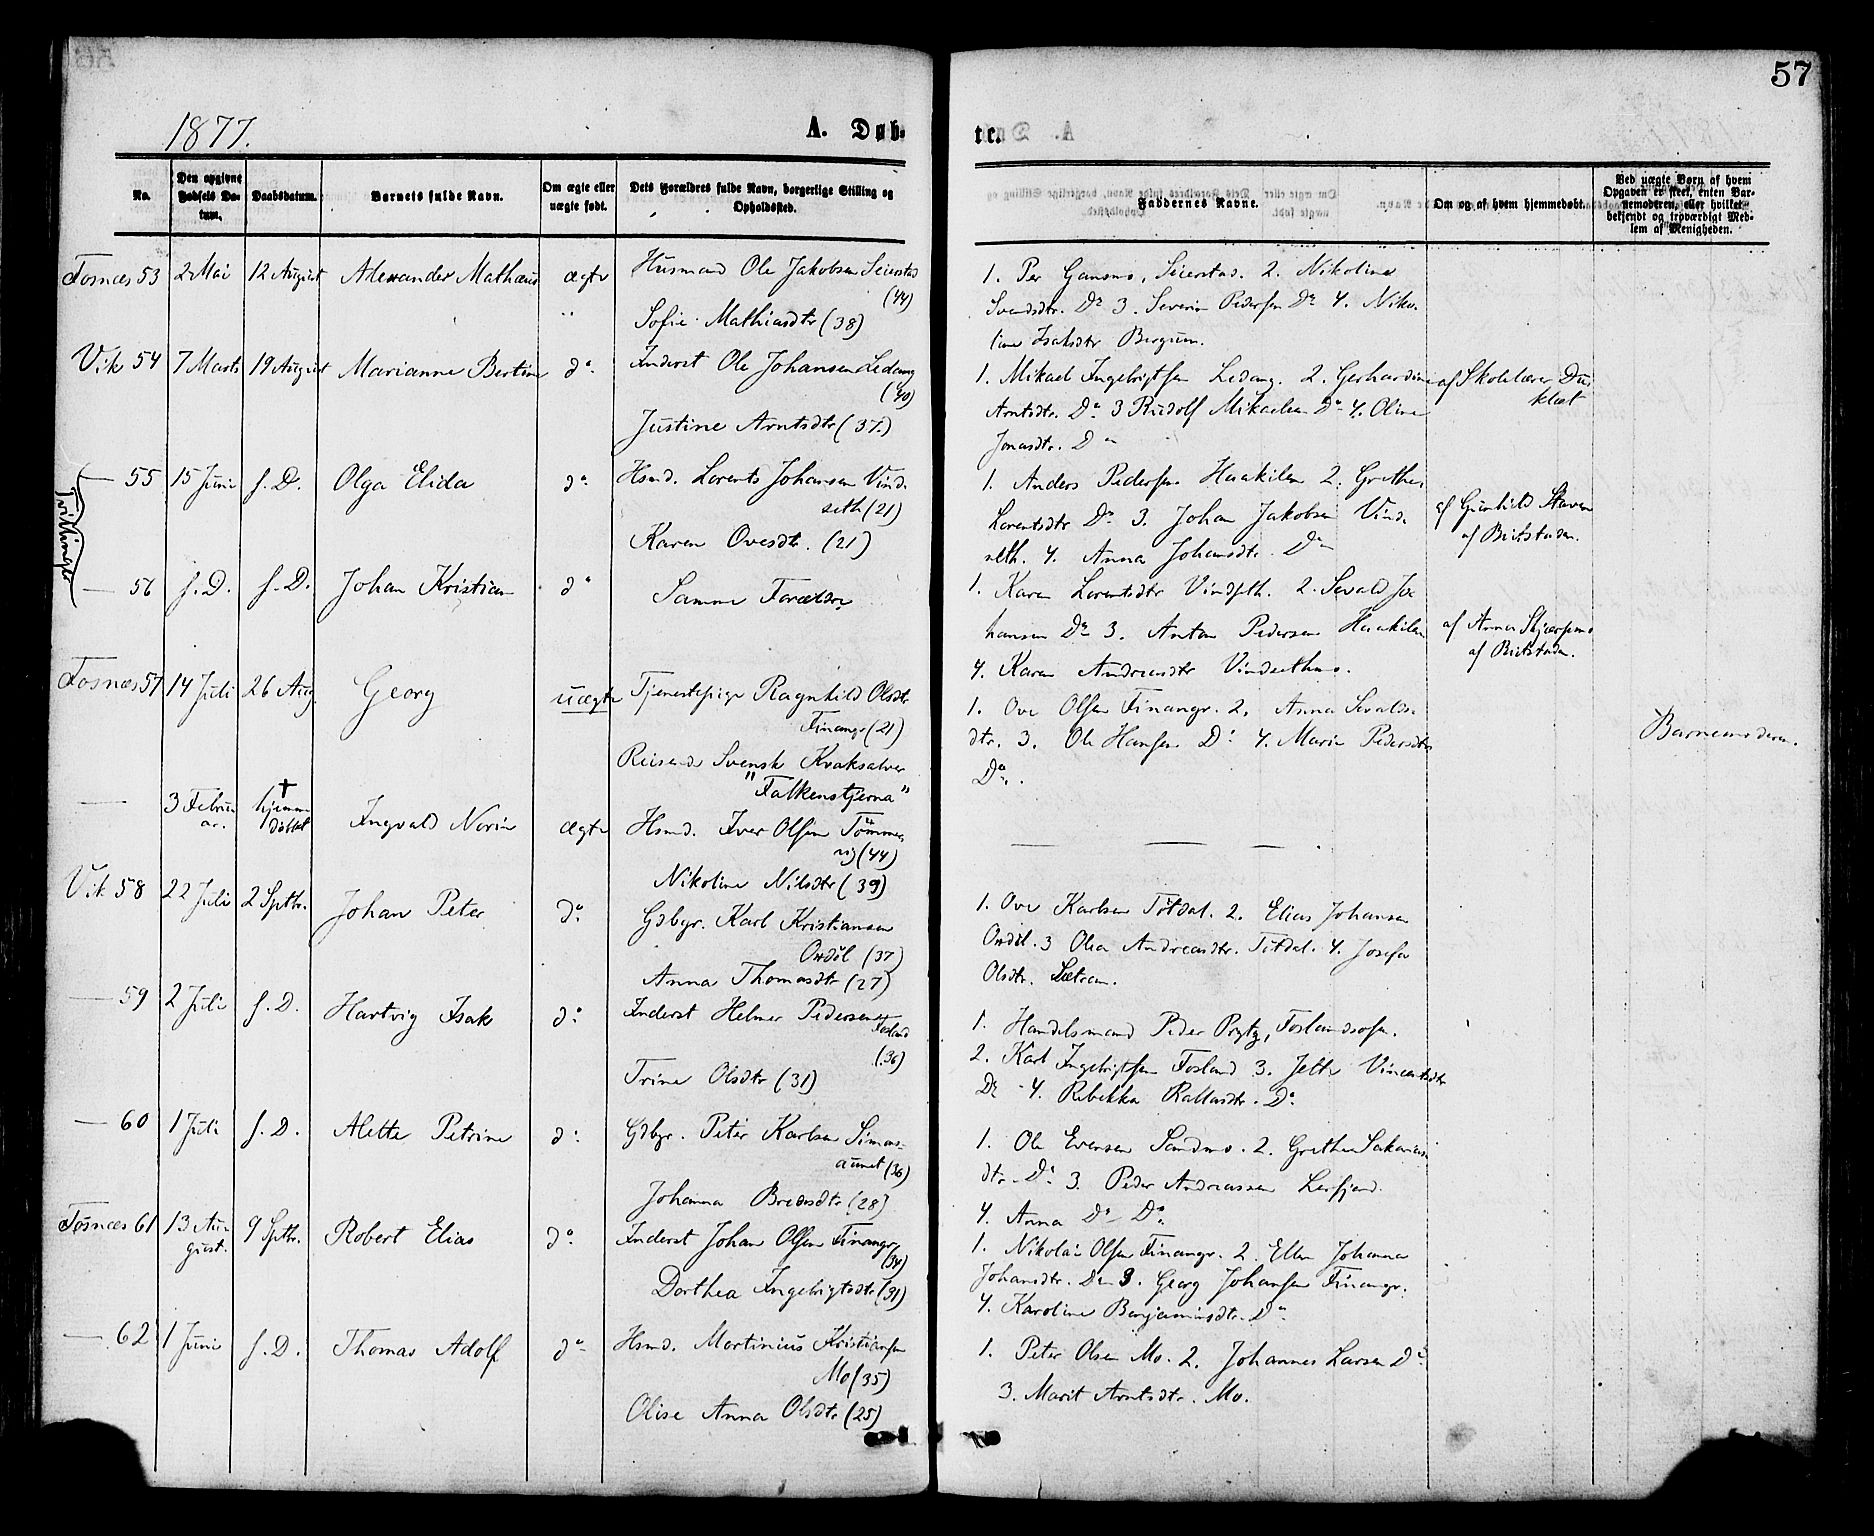 57
1877.
A. Døb-
te.
No.
Den opgivne Fødsels Datum.
Daabsdatum.
Barnets fulde Navn.
Om ægte eller uægte født.
Dets Forældres fulde Navn, borgerlige Stilling og Opholdssted.
Faddernes Navne.
Om og af hvem hjemmedøbt.
Ved uægte Børn af hvem Opgaven er skeet, enten Barnemoderen, eller hvilket bekjendt og troværdigt Medlem af Menigheden.
Fosnæs 53 2 Mai 12 August Alexander Mathæus ægte Husmand Ole Jakobsen Seierstad
(44)
Sofie Mathiasdtr (38)
1. Per Gansmo, Seierstad. 2. Nikoline
Svendsdtr. Do 3. Severin Pedersen Do 4. Niko-
line Isaksdtr Bergum.
Vik 54 7 Marts 19 August Marianne Bertine do Inderst Ole Johansen Ledang
(40)
Justine Arntsdtr (37.)
1. Mikael Ingebrigtsen Ledang. 2. Gerhardine
Arntsdtr. Do 3 Rudolf Mikaelsen Do 4. Oline
Jonasdtr. Do
af Skolelærer Dun
klæt
Tvillinger
— 55 15 Juni s. D. Olga Elida do Hsmd. Lorents Johansen Vind-
seth (21)
Karen Ovesdtr. (21)
1. Anders Pedersen Haakilen 2. Grethe
Lorentsdtr Do 3. Johan Jakobsen Vind-
seth. 4. Anna Johansdtr. Do
af Gunhild Staven
af Beitstaden.
— 56 s. D. s. D. Johan Kristian do Samme Forældre
1. Karen Lorentsdtr Vindseth. 2. Sevald Jo
hansen Do 3. Anton Pedersen Haakilen
4. Karen Andreasdtr Vindsethmo.
af Anna Skjærpmo
af Beitstaden.
Fosnæs 57 14 Juli 26 Aug. Georg uægte Tjenestepige Ragnhild Olsdtr
Finangr (21)
Reisende Svensk Kvaksalver
"Falkenstjerna"
1. Ove Olsen Finangr. 2. Anna Sevalds
dtr. 3. Ole Hansen Do 4. Marie Pedersdtr
Do.
Barnemoderen.
— 3 Februar. † hjemmedøbt Ingvald Norin ægte Hsmd. Iver Olsen Tömmer-
vig (44)
Nikoline Nilsdtr (39)
— — —
Vik 58 22 Juli 2 Septbr. Johan Peter do Gdbgr. Karl Kristiansen
Ordöl (37)
Anna Thomasdtr (27)
1. Ove Karlsen Tötdal. 2. Elias Johansen
Ordöl. 3 Olea Andreasdtr. Tötdal. 4. Josefa
Olsdtr. Sætran.
— 59 2 Juli s. D. Hartvig Isak do Inderst Helmer Pedersen Fosland
(36)
Trine Olsdtr (31)
1. Handelsmand Peder Prytz, Foslandsosen.
2. Karl Ingebrigtsen Fosland 3. Jette Vincentsdtr
Do 4. Rebekka Rallasdtr. Do
— 60 1 Juli s. D. Alette Petrine do Gdbgr. Peter Karlsen Simons-
aunet (36)
Johanna Brensdtr (28)
1. Ole Evensen Sandmo. 2. Grethe Sakarias
dtr. Do 3. Peder Andreassen Lerfjord.
4. Anna Do Do.
Fosnæs 61 13 August. 9 Septbr. Robert Elias do Inderst Johan Olsen Finangr
(34)
Dorthea Ingebrigtsdtr (31)
1. Nikolai Olsen Finangr. 2. Ellen Johanna
Johansdtr. Do 3. Georg Johansen Finangr.
4. Karoline Benjaminsdtr. Do
— 62 1 Juni s. D. Thomas Adolf do Hsmd. Martinius Kristiansen
Mo (35)
Olise Anna Olsdtr (25)
1. Peter Olsen Mo. 2. Johannes Larsen Do
3. Marit Arntsdtr. Mo.